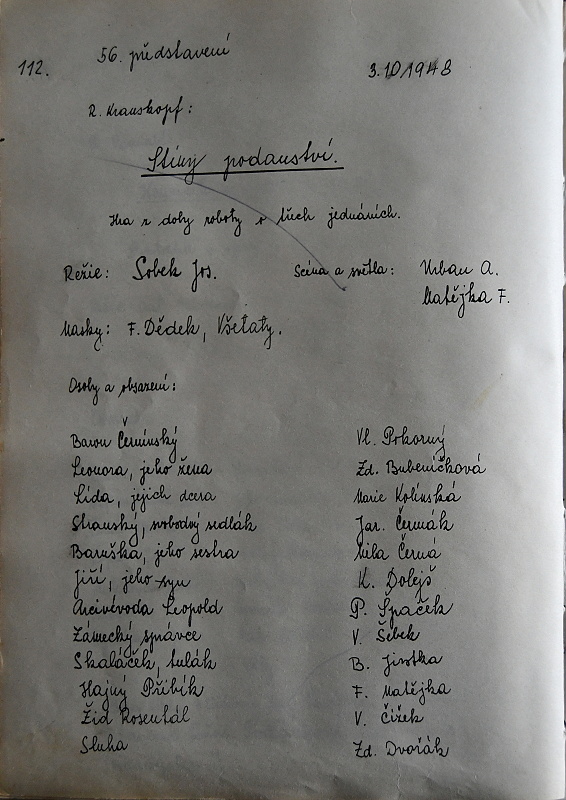 56. představení
112.
3.10.1948
R. Krauskopf:
Stíny poddanství.
Hra z doby roboty o třech jednáních.
Režie: Sobek Jos. Scéna a světla: Urban A.
Matějka F.
Masky: F. Dědek, Všetaty.
Osoby a obsazení:
Baron Černínský Vl. Pokorný
Leonora, jeho žena Zd. Bubeníčková
Lída, jejich dcera Marie Kolínská
Stranský, svobodný sedlák Jar. Čermák
Baruška, jeho sestra Mila Černá
Jiří, jeho syn K. Dolejš
Arcivévoda Leopold P. Špaček
Zámecký správce V. Šebek
Skaláček, tulák B. Jirotka
Hajný Přibík F. Matějka
Žid Rosentál V. Čížek
Sluha Zd. Dvořák